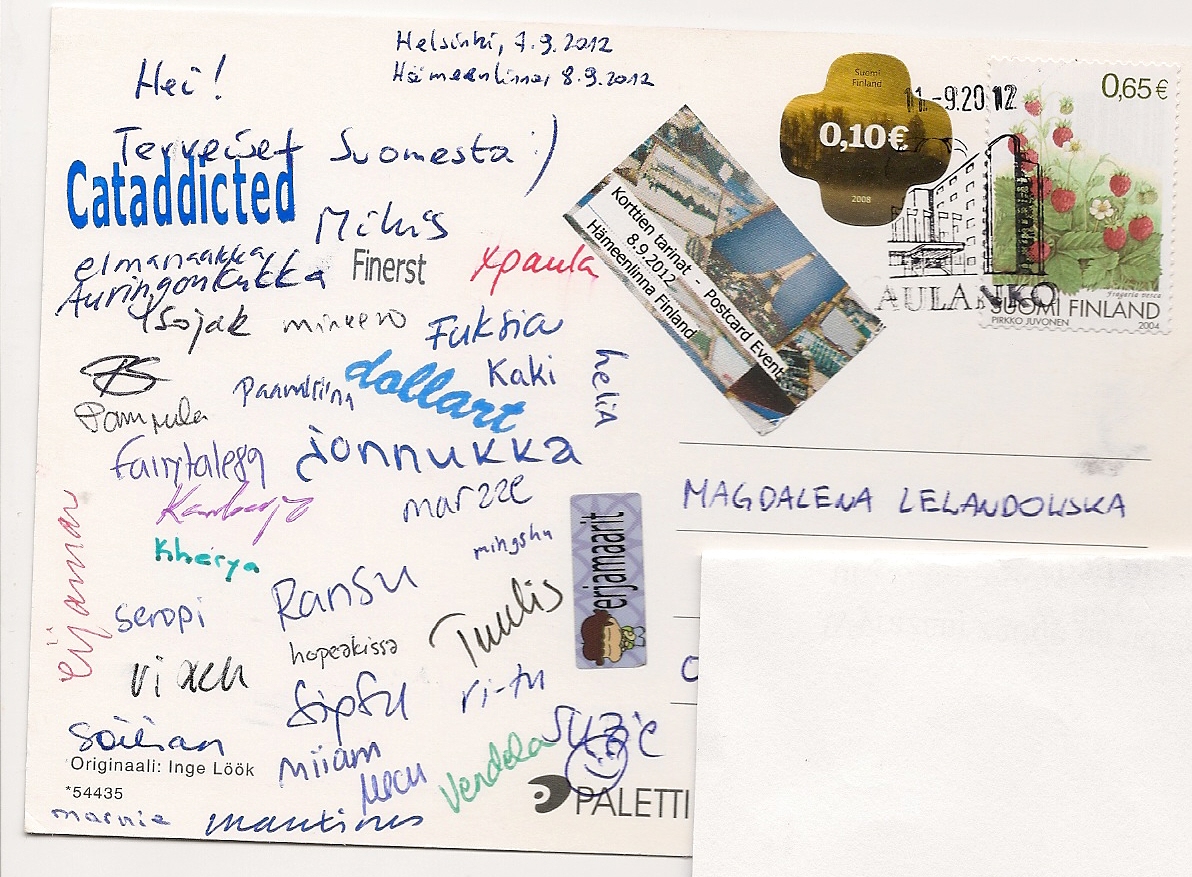 Helsinki, 7.9.2012
Hämeenlinna 8.9.2012
Hei!
Terveiset Suomesta :)
Cataddicted
Mikis
elmanaakka
Auringonkukka
Finerst
xpaula
Isojak
minkero
Fuksia
Kaki
helia
dollart
Pampula
Fairytalega
jonnukka
marzze
mingshu
Kherya
Ransu
seropi
erijamar
Tuulis
hopeakissa
viach
Sipsu
ri-tu
Suzie
Miiam
Vendela
marnie
Originaali: Inge Löök
*54435
PALETTI
erjamaarit
Korttien tarinat - Postcard Event
8.9.2012
Hämeenlinna Finland
Suomi
Finland
0,10€
2008
11.-9.2012
AULANKO
0,65€
Fragaria vesca
SUOMI FINLAND
PIRKKO JUVONEN
2004
MAGDALENA LEWANDOWSKA